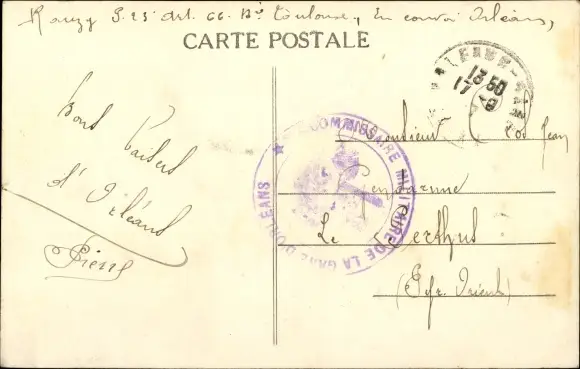 S. 23 Art. 66. Bie Toulouse, En convoi Orléans,
CARTE POSTALE
13 50
17
COMMISSAIRE MILITAIRE DE LA GARE D'ORLÉANS
Bons Baisers
d'Orléans
Pierre
Monsieur Jean
Gendarme
Le Perthus
(Pyr. Orient)